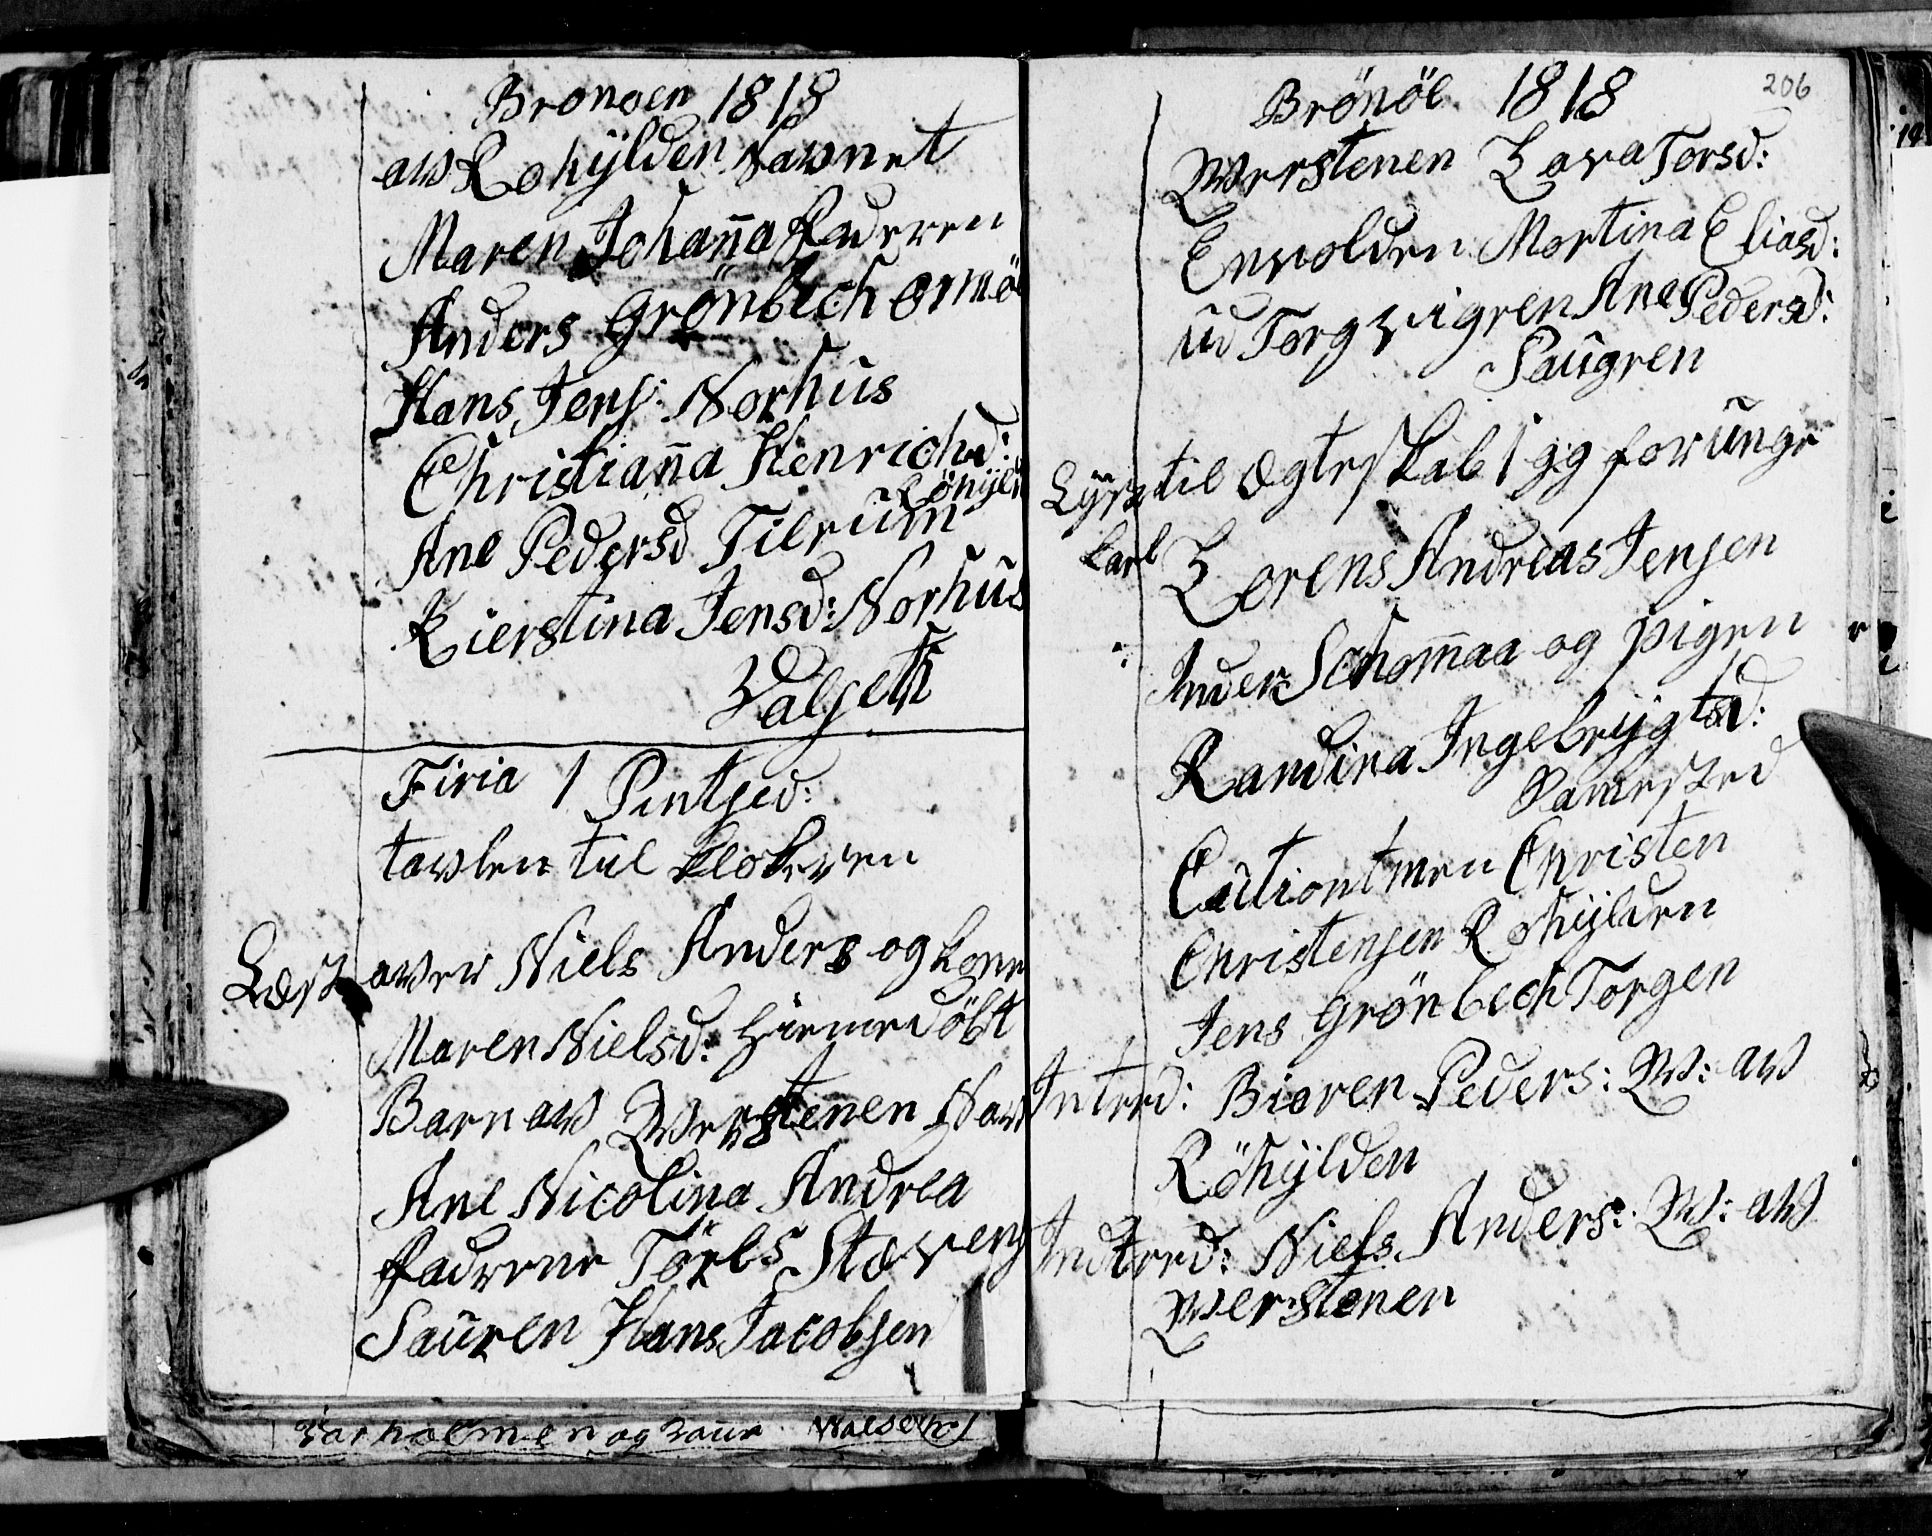 Bronoen 1818
aw Rohÿlden Nawnet
Maren Johan̄a Faderen
Anders Grönbech ormö
Hans Jens: Norhus
Christian̄a Henrichd:
Röhÿld
Ane Pedersd Tilrŭm
Kierstina Jensd: Norhŭs
Valseth
Firia 1 Pintsed:
tawlen til klokeren
Læst over Niels Anders og kone
Maren Nielsd: Hiemedöbt
Barn aw Qwerstenen Naw
Ane Nicolina Andrea
Faderne Törls Stæveng
Saŭren Hans Jacobsen
Torholmen og
Brönöe 1818
206
Qwerstenen Lava Torsd:
Enwolden Mortina Eliasd:
ŭd Torg vigren Ane Pedersd:
Saŭgren
Lÿst til Ægteskab 1 gg for ŭnge
karl Lorens Andreas Jensen
Inder Schom̄aa og pigen
Randina Ingebrÿgtsd:
Ramested
Caŭtiontmen Christen
Christensen Rohÿlden
Jens Grönbech Torgen
Intred: Bieren Peders: Qw: aw
Röhÿlden
Indtred: Niels Anders: Qw: aw
Qwerstenen